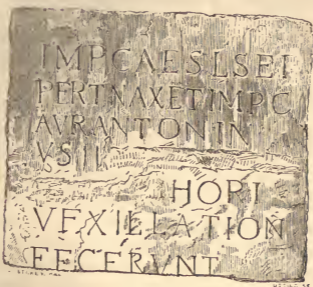 IMPCAESLSEI
PERTNAXETIMPC
AVRANTONIN
VSII
HOPI
VFXILLATION
FECERVNT